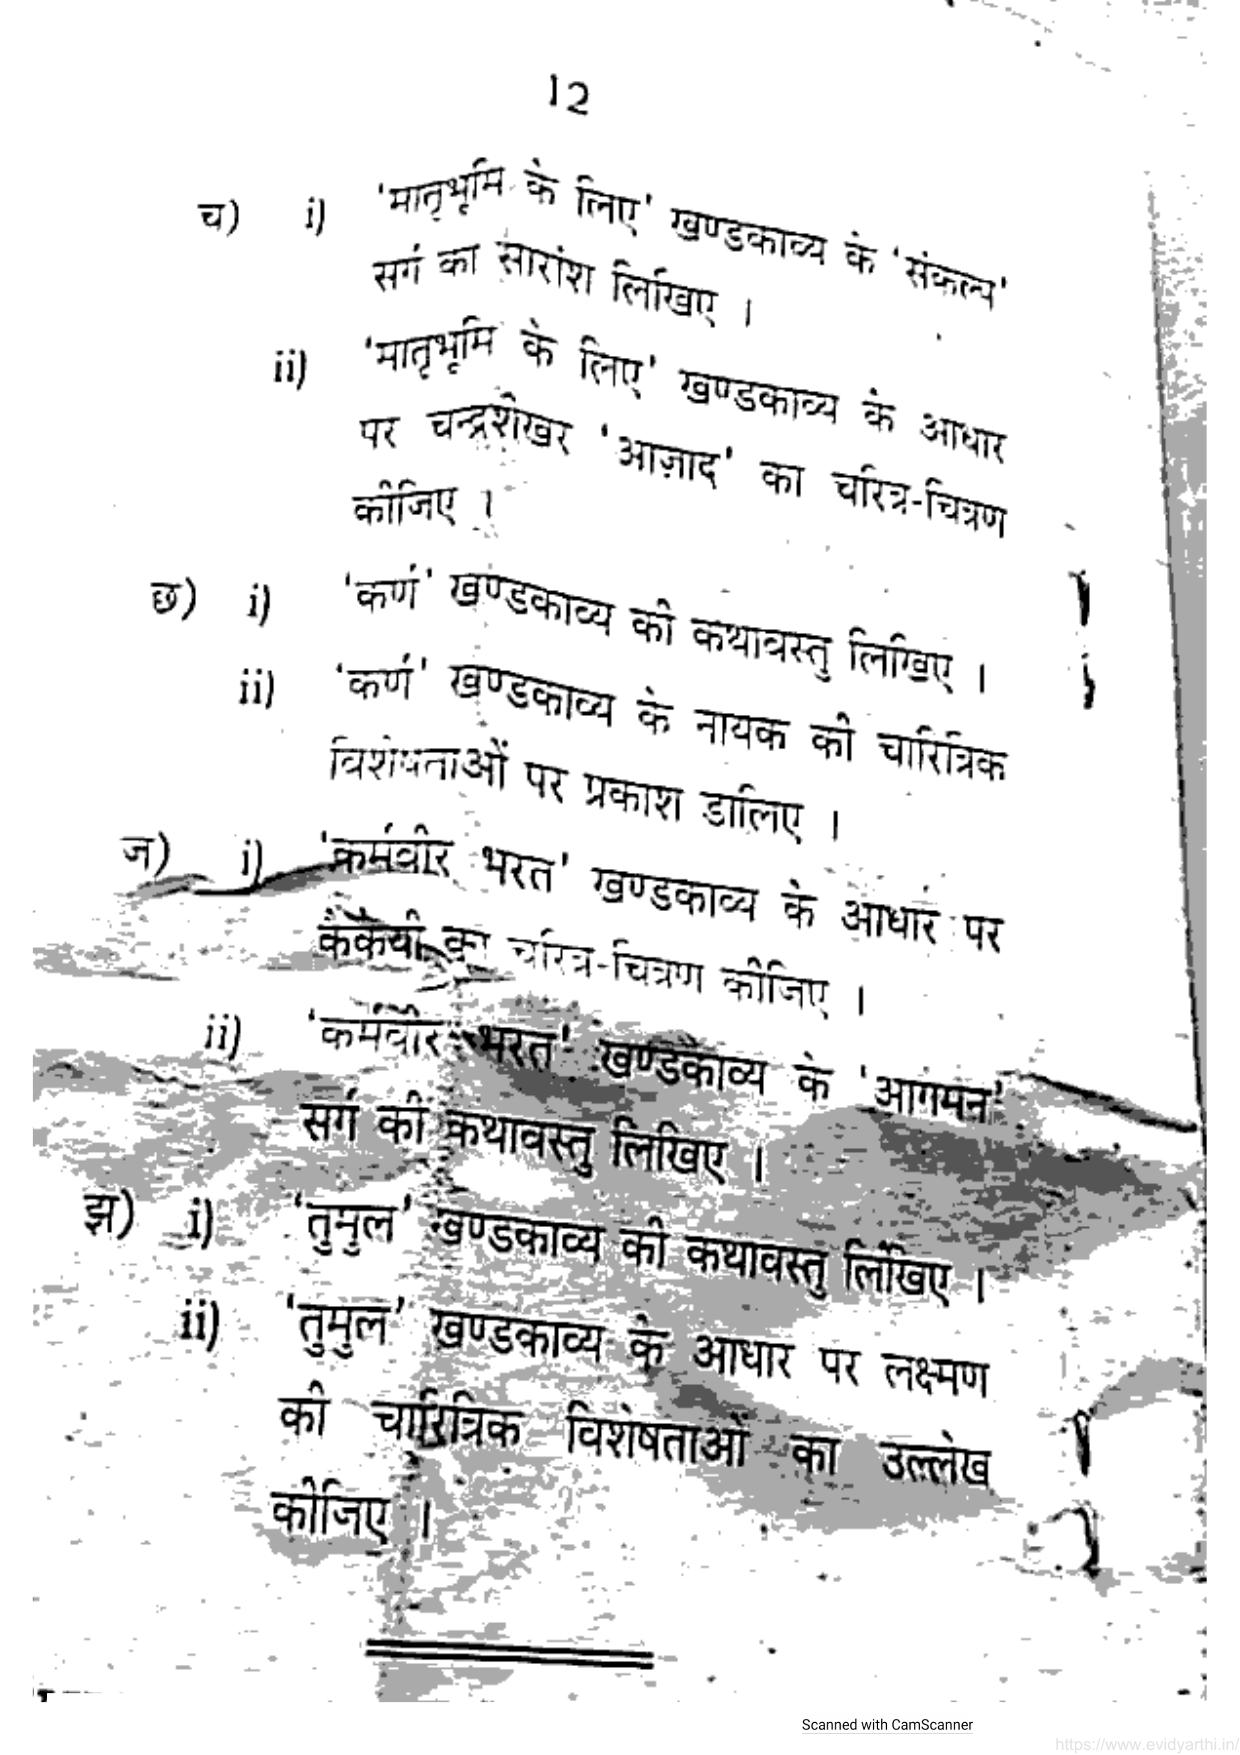 12
च) i) 'मातृभूमि के लिए' खण्डकाव्य के 'संकल्प'
सर्ग का सारांश लिखिए ।
ii) 'मातृभूमि के लिए' खण्डकाव्य के आधार
पर चन्द्रशेखर 'आज़ाद' का चरित्र-चित्रण
कीजिए ।
छ) i) 'कर्ण' खण्डकाव्य की कथावस्तु लिखिए ।
ii) 'कर्ण' खण्डकाव्य के नायक की चारित्रिक
विशेषताओं पर प्रकाश डालिए ।
ज) i) 'कर्मवीर भरत' खण्डकाव्य के आधार पर
कैकेयी का चरित्र-चित्रण कीजिए ।
ii) 'कर्मवीर भरत' खण्डकाव्य के 'आगमन'
सर्ग की कथावस्तु लिखिए ।
झ) i) 'तुमुल' खण्डकाव्य की कथावस्तु लिखिए ।
ii) 'तुमुल' खण्डकाव्य के आधार पर लक्ष्मण
की चारित्रिक विशेषताओं का उल्लेख
कीजिए ।
Scanned with CamScanner
https://www.evidyarthi.in/